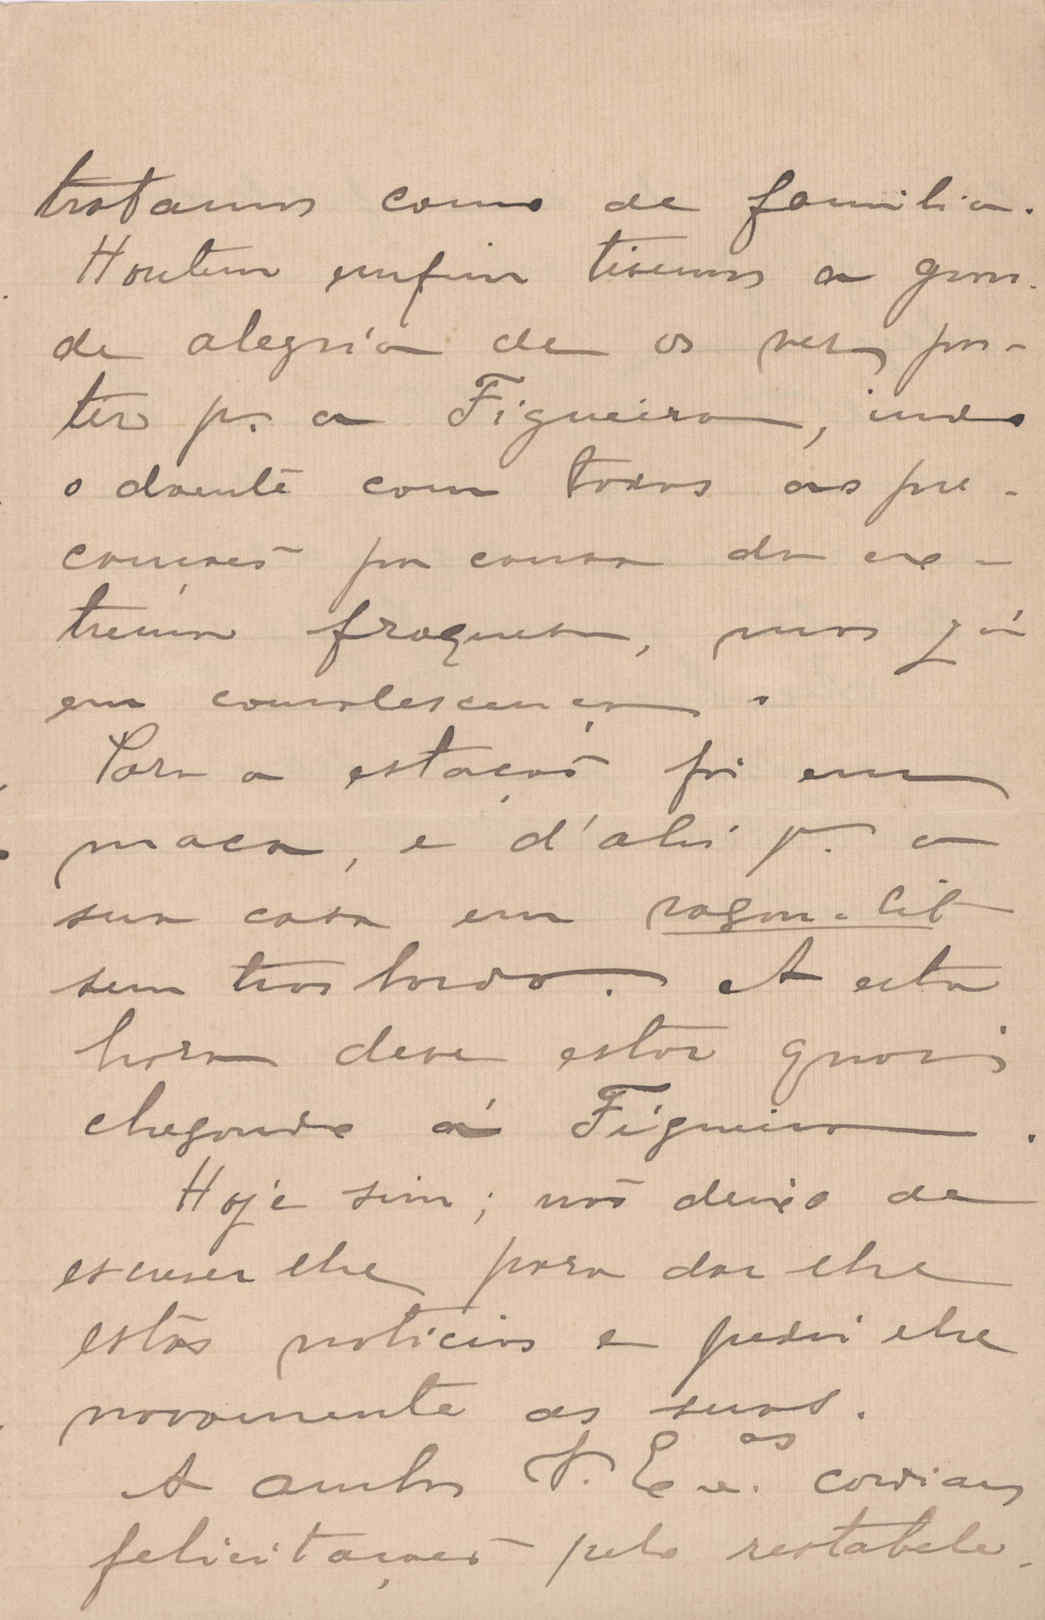 tratamos como de familia.
Hontem emfim tivemos a gran-
de alegria de os ver par-
tir p.ª a Figueira, indo
o doente com todas as pre-
cauções por causa da ex-
trema fraquesa, mas já
em convalescença.
Para a estação foi em
maca, e d'ahi p.ª a
sua casa em vagon-lit
sem trasbordo. A esta
hora deve estar quasi
chegando á Figueira.
Hoje sim; não deixo de
escrever lhe para dar lhe
estas noticias e pedir lhe
novamente as suas.
A ambos V. Ex.as cordiaes
felicitações pelo restabele-